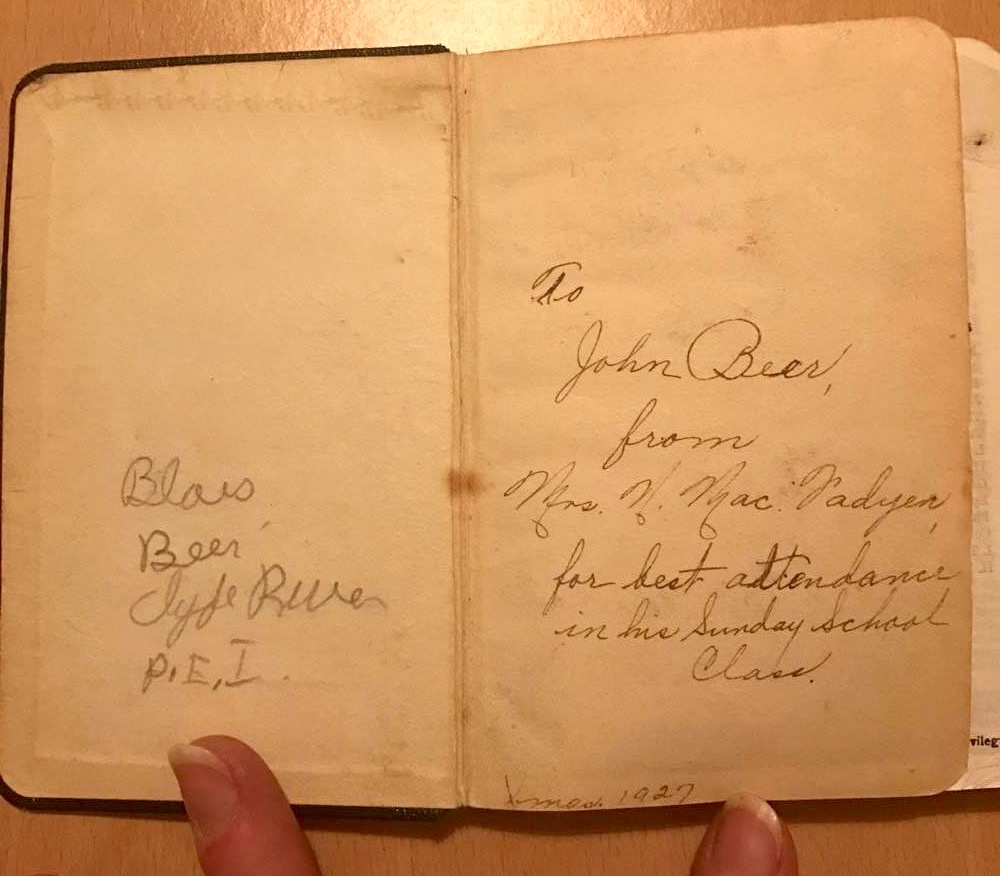 Beer
Clyde River
P.E.I.
To
John Beer,
from
Mrs. N. Mac. Fadyen,
for best attendance
in his Sunday School
Class.
Xmas. 1927